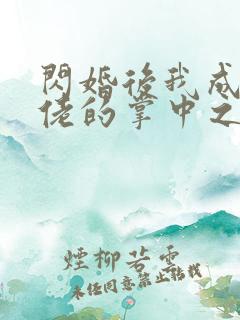 閃婚後我成
佬的掌中之
煙柳若雲
未经同意禁止转载